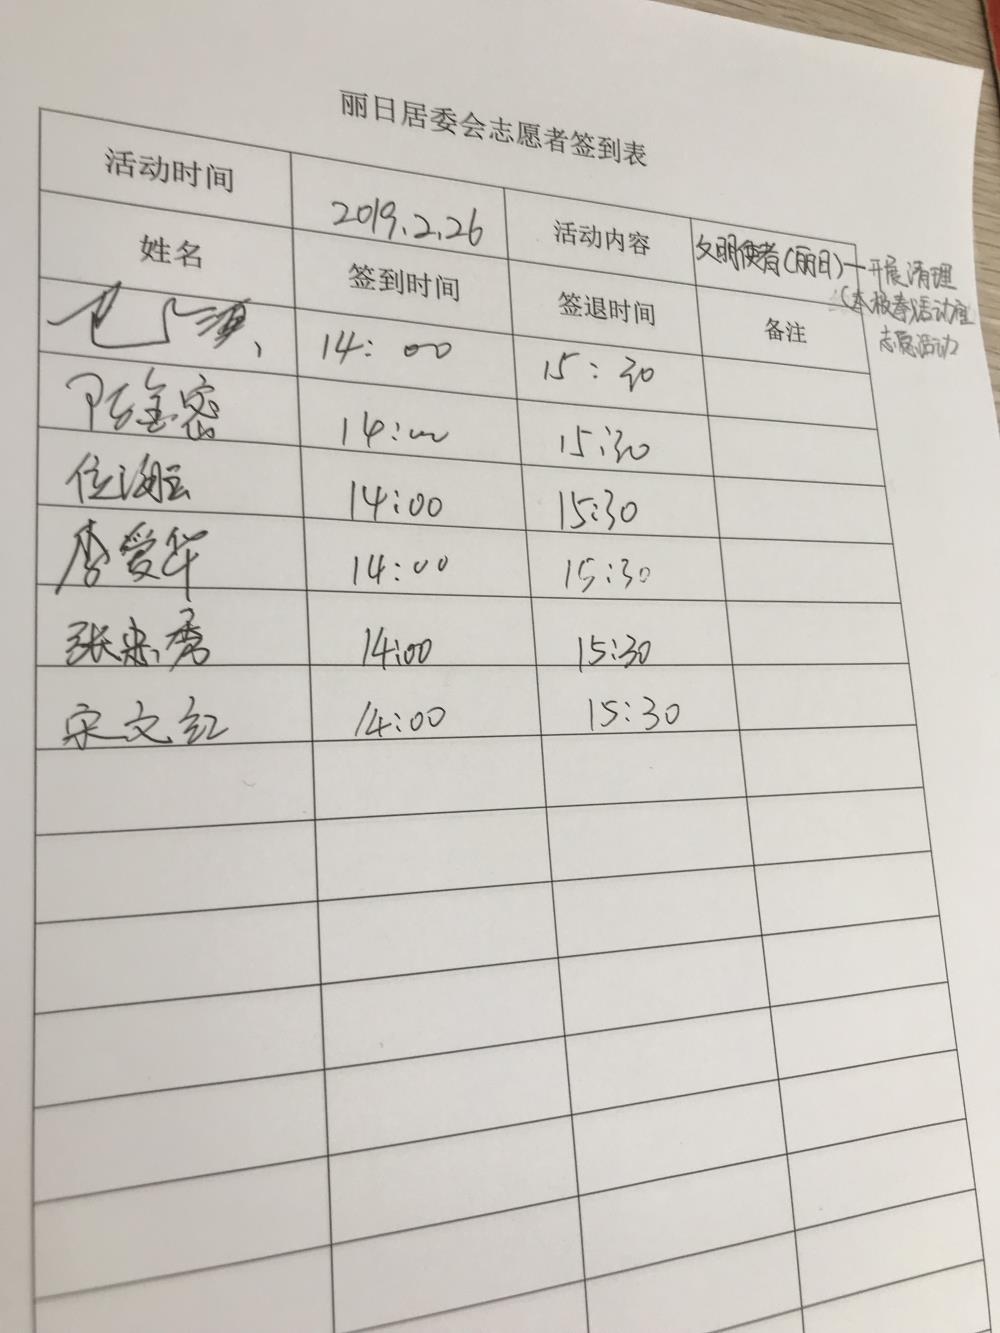 丽日居委会志愿者签到表
活动时间 2019.2.26 活动内容 文明使者(丽日)一开展清理
志愿活动
姓名 签到时间 签退时间 备注
14:00 15:30
陈金密 14:00 15:30
14:00 15:30
李爱华 14:00 15:30
张忠秀 14:00 15:30
宋文红 14:00 15:30